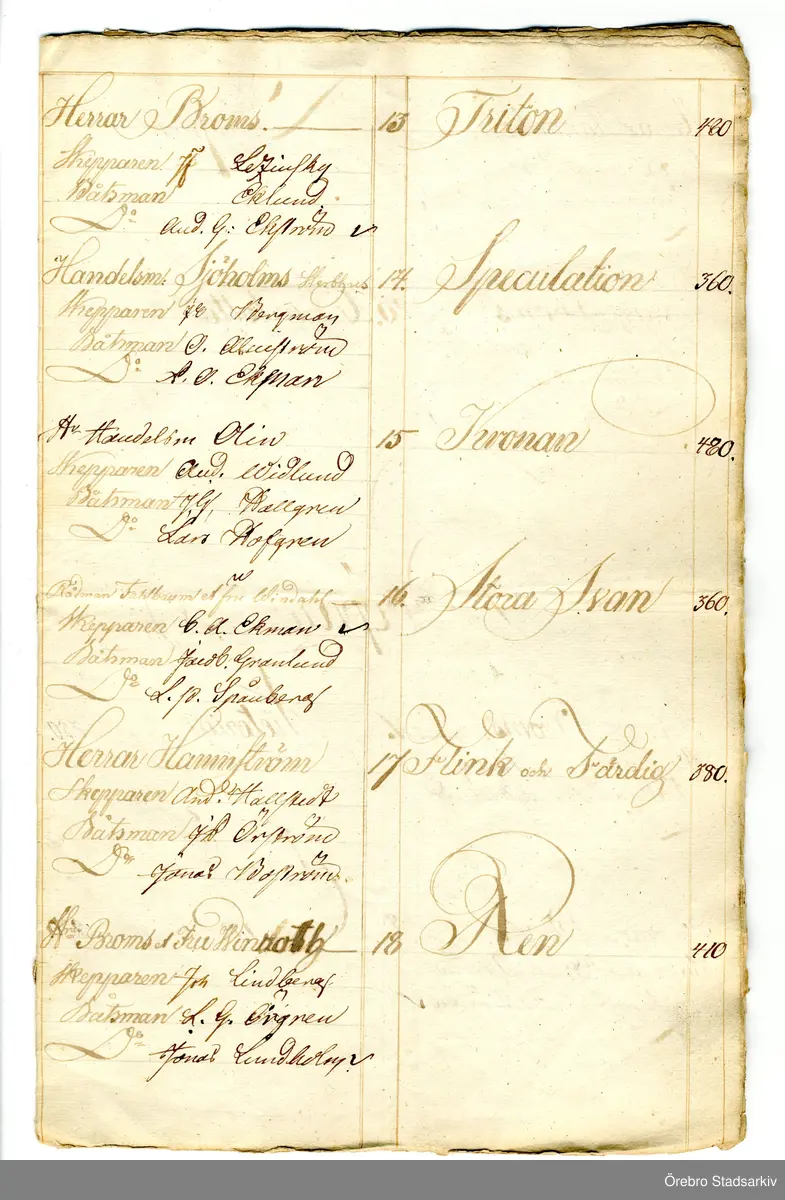 Herrar Broms. 13 Triton 420
Skepparen Lezinsky
Båtsman Eklund.
Do And. G: Ekström
Handelsm: Sjöholms Sterbhus 14. Speculation 360.
Skepparen Bergman
Båtsman O. Almström
Do A. O. Ekman
Hr Handelsm Olin 15 Kronan 420.
Skepparen And. Widlund
Båtsman Hallgren
Do Lars Hofgren
Rådman Fehlbom et fru Windahl 16. Stora Svan 360.
Skepparen C. A. Ekman
Båtsman Jacob. Granlund
Do L. P. Spånberg
Herrar Hammström 17 Flink och Färdig 380.
Skepparen And. Hallstedt
Båtsman Örström
Do Jonas Boström
Hrr Broms et Fru 18 Ren 410
Skepparen Joh Lindberg
Båtsman L. G. Örgren
Do Jonas Lundholm
Örebro Stadsarkiv